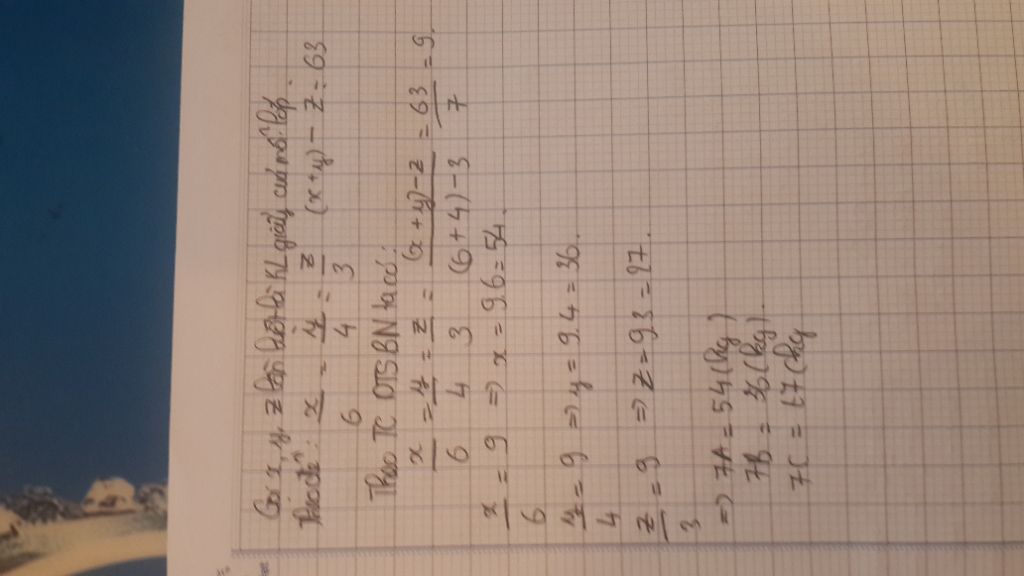 Gọi x, y, z lần lượt là KL giấy của mỗi lớp.
Theo đề: x/6 = y/4 = z/3 (x+y) - z = 63
Theo TC DTSBN ta có:
x/6 = y/4 = z/3 = (x+y)-z/(6+4)-3 = 63/7 = 9.
x/6 = 9 => x = 9.6 = 54.
y/4 = 9 => y = 9.4 = 36.
z/3 = 9 => z = 9.3 = 27.
=> 7A = 54 (kg)
7B = 36 (kg).
7C = 27 (kg